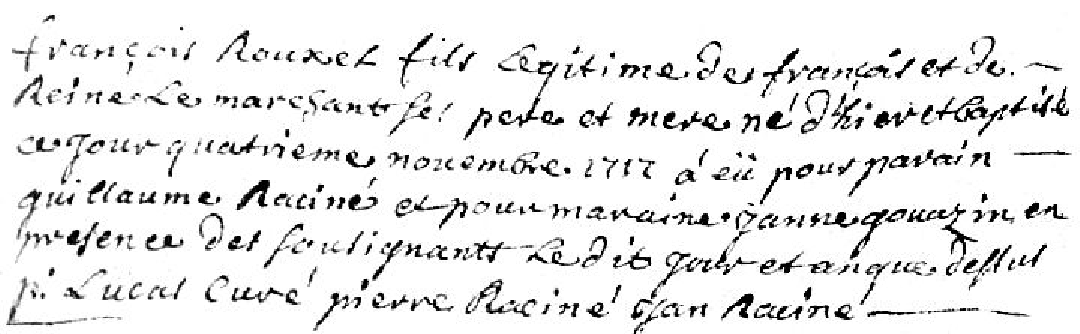 françois Rouxel fils Legitime de françois et de
Reine Le marchant ses pere et mere né d'hier et baptisé
ce jour quatrieme novembre 1717 à eü pour parain
guillaume Raciné et pour maraine janne gouazin en
presence des soulignants Le dit jour et an que dessus
p. Lucas Curé pierre Raciné jan Raciné